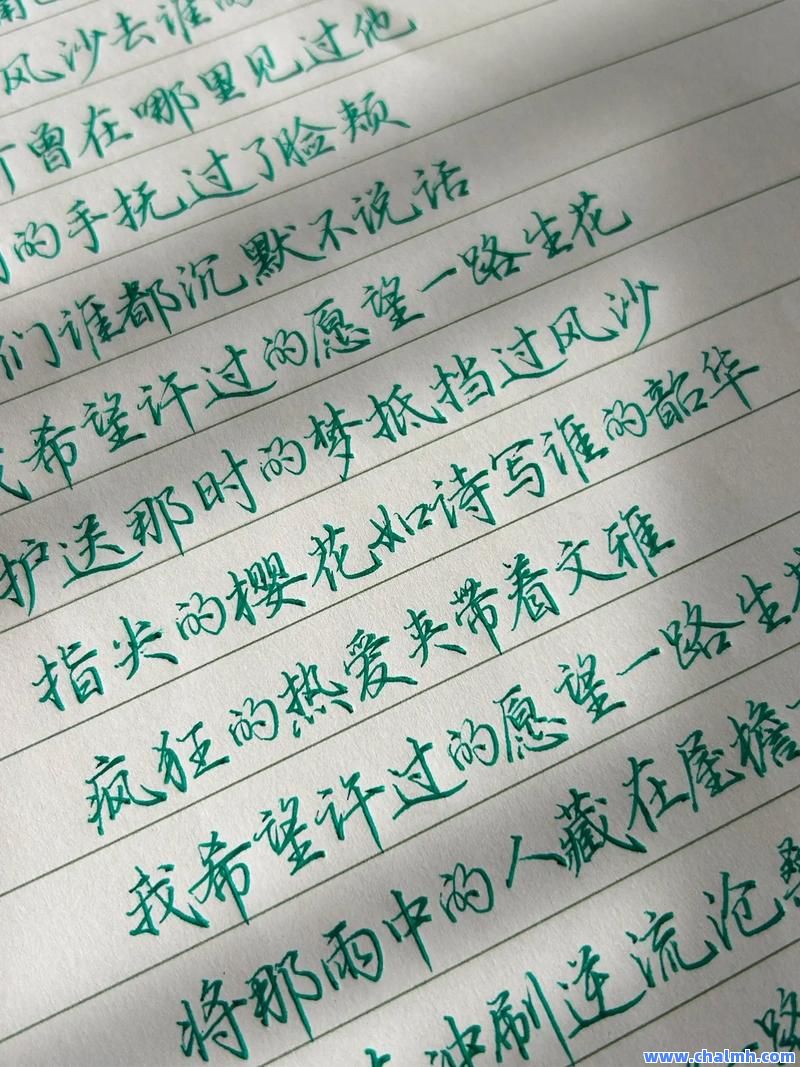 风沙去谁的
曾在哪里见过他
的手抚过了脸颊
们谁都沉默不说话
我希望许过的愿望一路生花
护送那时的梦抵挡过风沙
指尖的樱花如诗写谁的韶华
疯狂的热爱夹带着文雅
我希望许过的愿望一路生花
将那雨中的人藏在屋檐
冲刷逆流沧桑
一路
www.chalmh.com